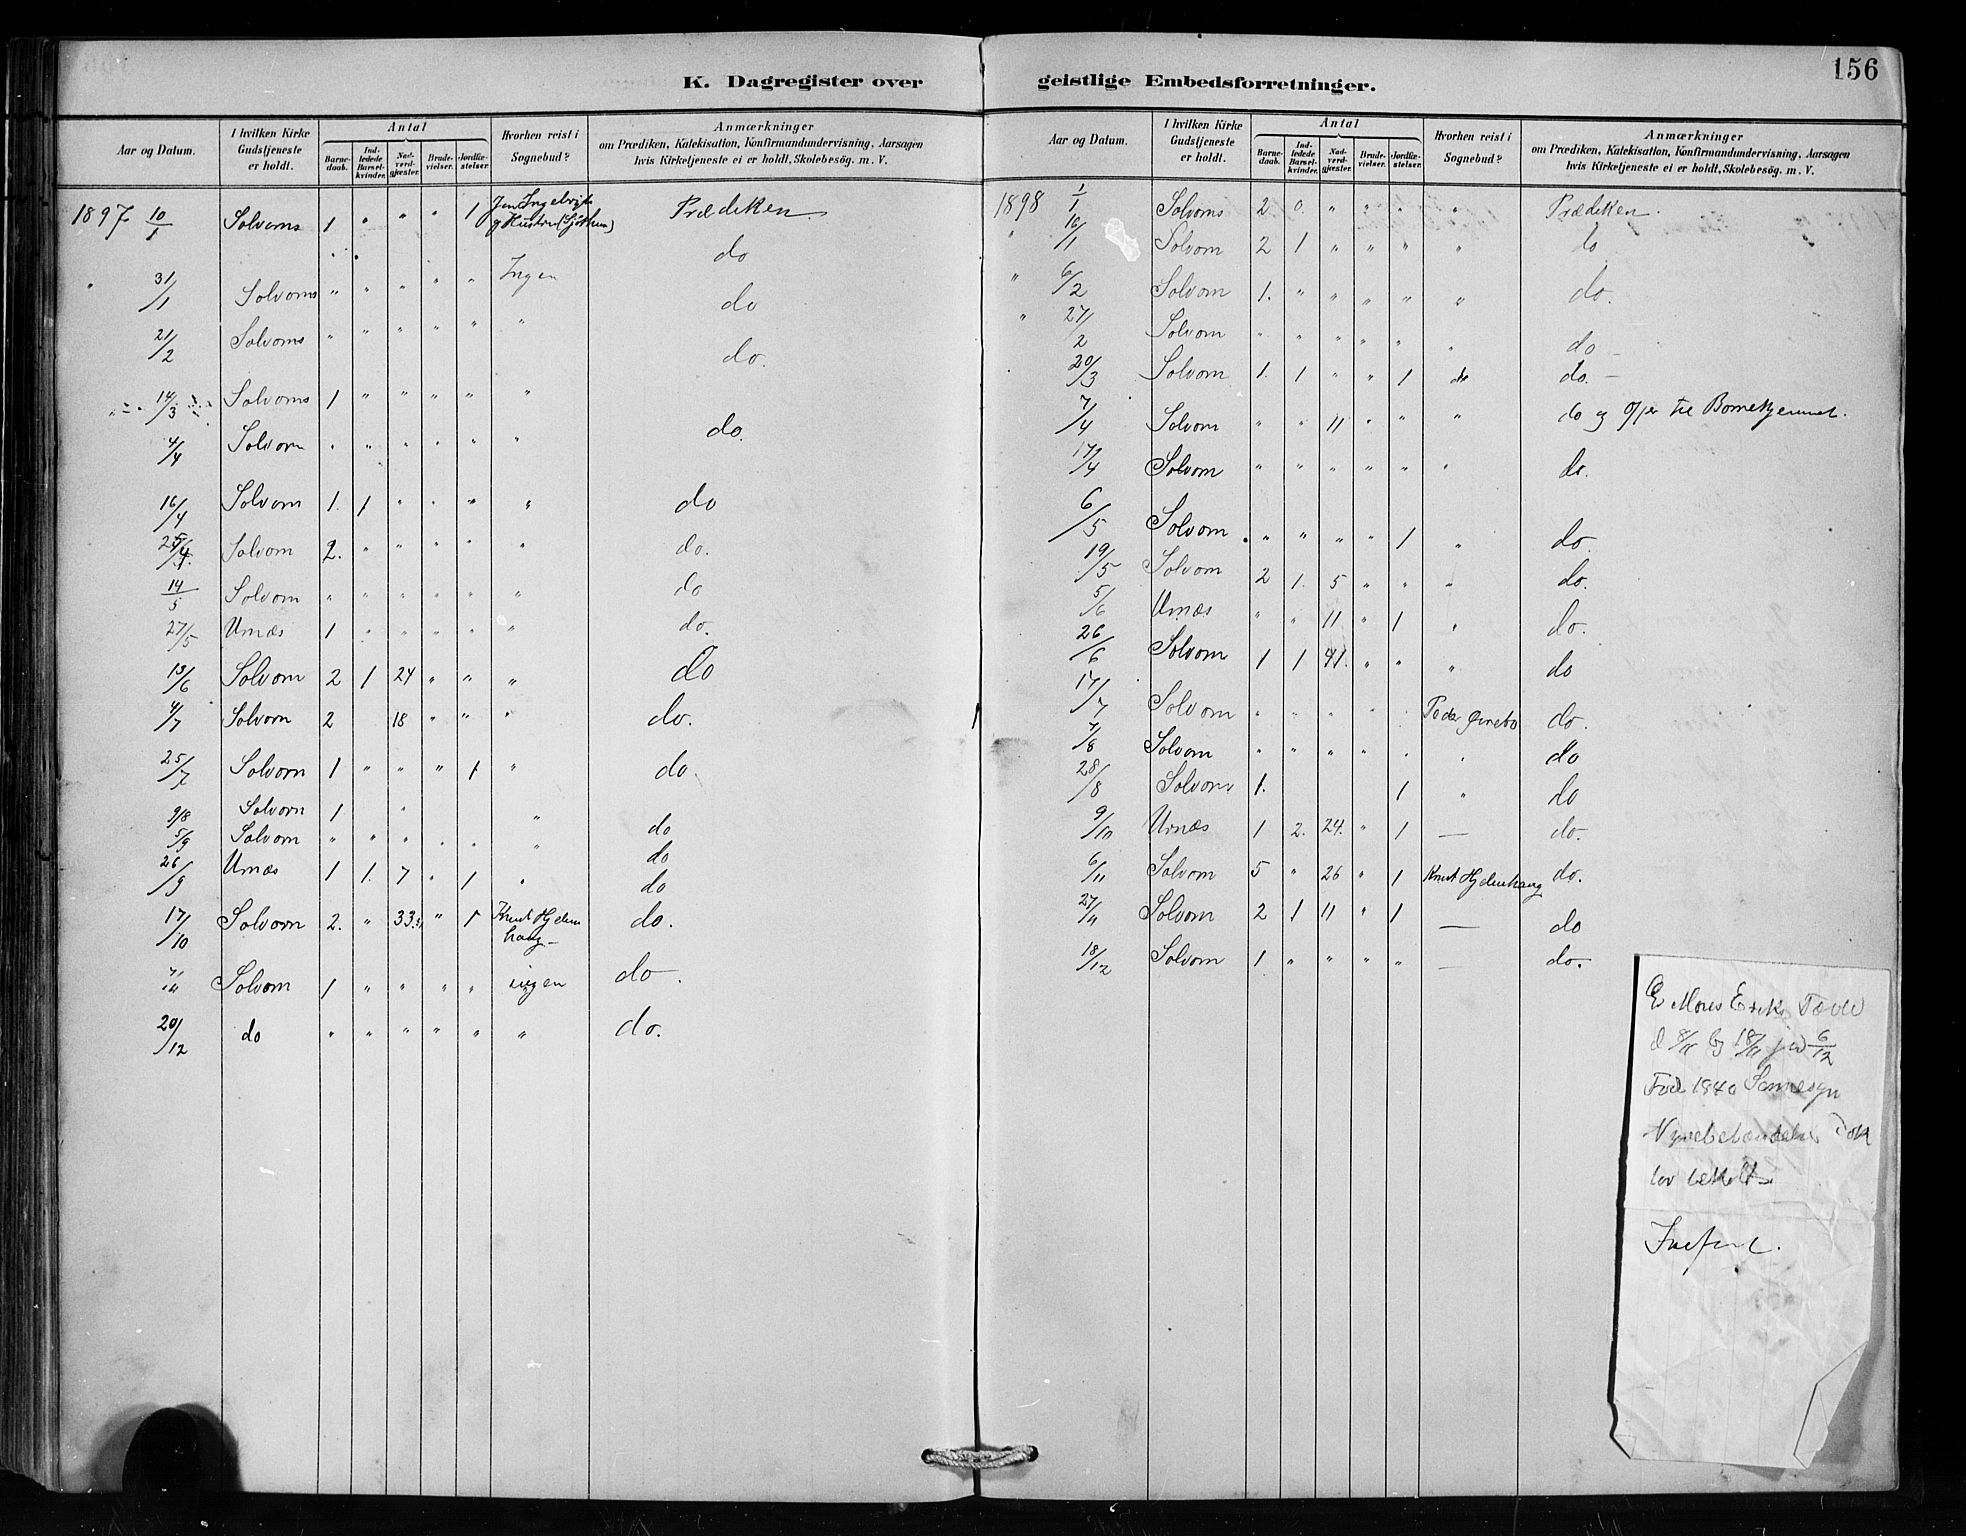 K. Dagregister over
Aar og Datum.
I hvilken Kirke Gudstjeneste er holdt.
Antal
Barnedaab.
Indledede Barselkvinder.
Nadverdgjæster.
Brudevielser.
Jordfæstelser.
Hvorhen reist i Sognebud?
Anmærkninger
om Prædiken, Katekisation, Konfirmandundervisning, Aarsagen
hvis Kirketjeneste ei er holdt, Skolebesög. m. V.
1897 10/1 Solvorns 1 " " " 1 Prædiken
do
" 31/1 Solvorns " " " " " Ingen do
21/2 Solvorns " " " " " " do.
14/3 Solvorns 1 " " " " "
4/4 Solvorn " " " " " " do.
16/4 Solvorn 1. 1 " " " " do
Solvorn 2. " " " " " do.
14/5 Solvorn " " " " " " do
27/5 Urnæs 1 " " " " " do.
13/6 Solvorn 2 1 24 " " " do
4/7 Solvorn 2 18 " " " do.
25/7 Solvorn 1 " " " 1 " do
9/8 Solvorn 1 " " do
5/9 Solvorn " " " " " " do
26/9 Urnæs 1 1. 7 " 1 " do
17/10 Solvorn 2. " 33 " 1 Knut Hjelm
haug do.
Solvorn 1 " " " " ingen do
20/12 do " " " " " " do.
156
geistlige Embedsforretninger.
Aar og Datum.
I hvilken Kirke Gudstjeneste er holdt.
Antal
Barnedaab.
Indledede Barselkvinder.
Nadverdgjæster.
Brudevielser.
Jordfæstelser.
Hvorhen reist i Sognebud?
Anmærkninger
om Prædiken, Katekisation, Konfirmandundervisning, Aarsagen
hvis Kirketjeneste ei er holdt, Skolebesög. m. V.
1898 1/1 Solvorns 2 0 " " " " Prædiken.
" 16/1 Solvorn 2 1 " " " " do
" 6/2 Solvorn 1. " " " " " do.
" 27/2 Solvorn " " " " " " do
20/3 Solvorn 1. 1 " " 1 do do.
7/4 Solvorn " " 11 " " " do og Offer til
17/4 Solvorn " " " " " " do.
6/5 Solvorn " " " " 1 " do.
19/5 Solvorn 2 1. 5 " " " do.
5/6 Urnæs " " 11 " 1 " do.
26/6 Solvorn 1 1 41. " " " do
17/7 Solvorn " " " " do.
7/8 Solvorn " " " " " " do
28/8 Solvorn 1. 1 " do
9/10 Urnæs 1 2. 24. " 1 — do.
6/11 Solvorn 5 " 26 " 1 Knut Hjelmhaug do.
27/11 Solvorn 2 1 11 " 1 — do
18/12 Solvorn 1 " " " " — do.
8/11 18/11 6/12